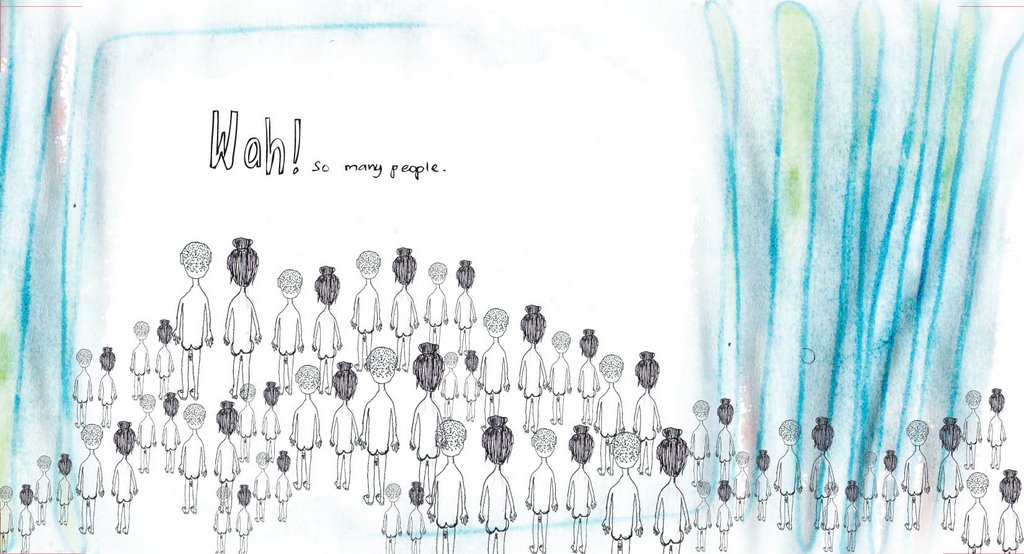 Wah! So many people.